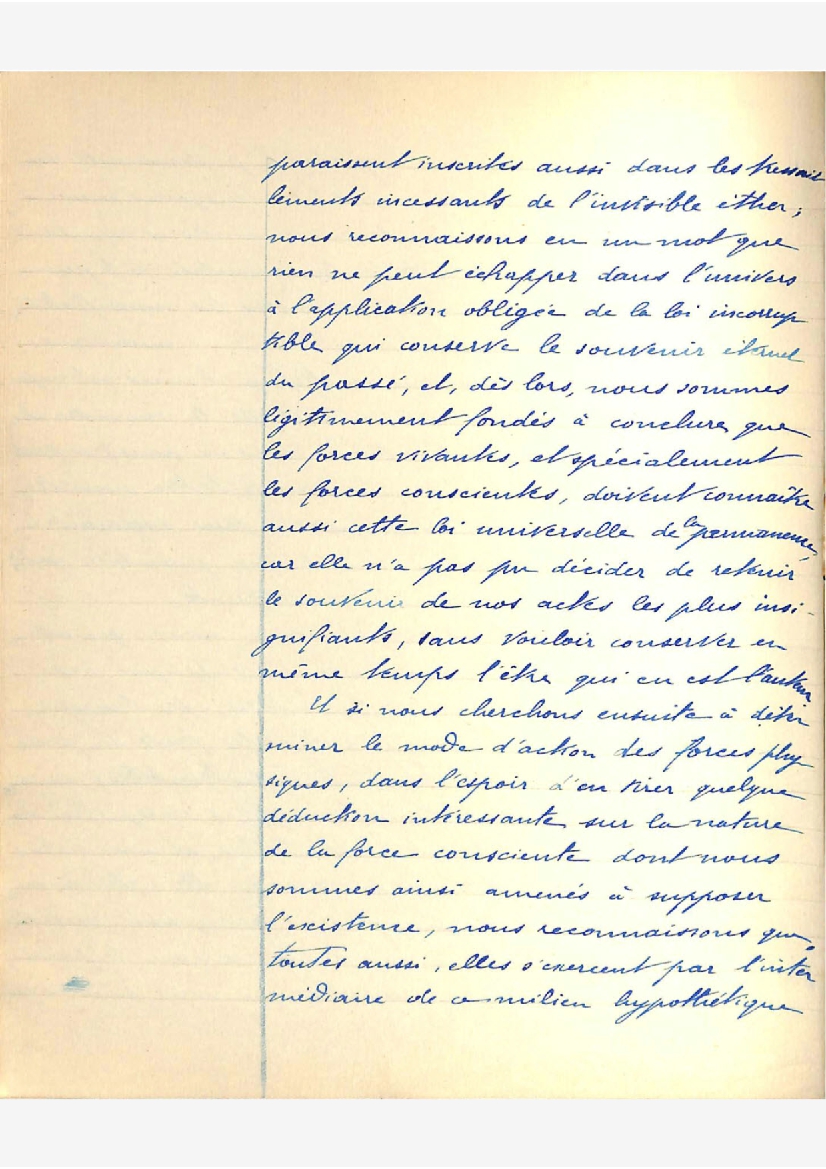 paraissent inscrites aussi dans les tressail
lements incessants de l'invisible éther;
nous reconnaissons en un mot que
rien ne peut échapper dans l'univers
à l'application obligée de la loi incorrup
tible qui conserve le souvenir éternel
du passé, et, dès lors, nous sommes
légitimement fondés à conclure que
les forces vivantes, et spécialement
les forces conscientes, doivent connaître
aussi cette loi universelle de la permanence,
car elle n'a pas pu décider de retenir
le souvenir de nos actes les plus insi-
gnifiants, sans vouloir conserver en
même temps l'être qui en est l'auteur.
Et si nous cherchons ensuite à déter
miner le mode d'action des forces phy
siques, dans l'espoir d'en tirer quelque
déduction intéressante sur la nature
de la force consciente dont nous
sommes ainsi amenés à supposer
l'existence, nous reconnaissons que,
toutes aussi, elles s'exercent par l'inter
médiaire de ce milieu hypothétique